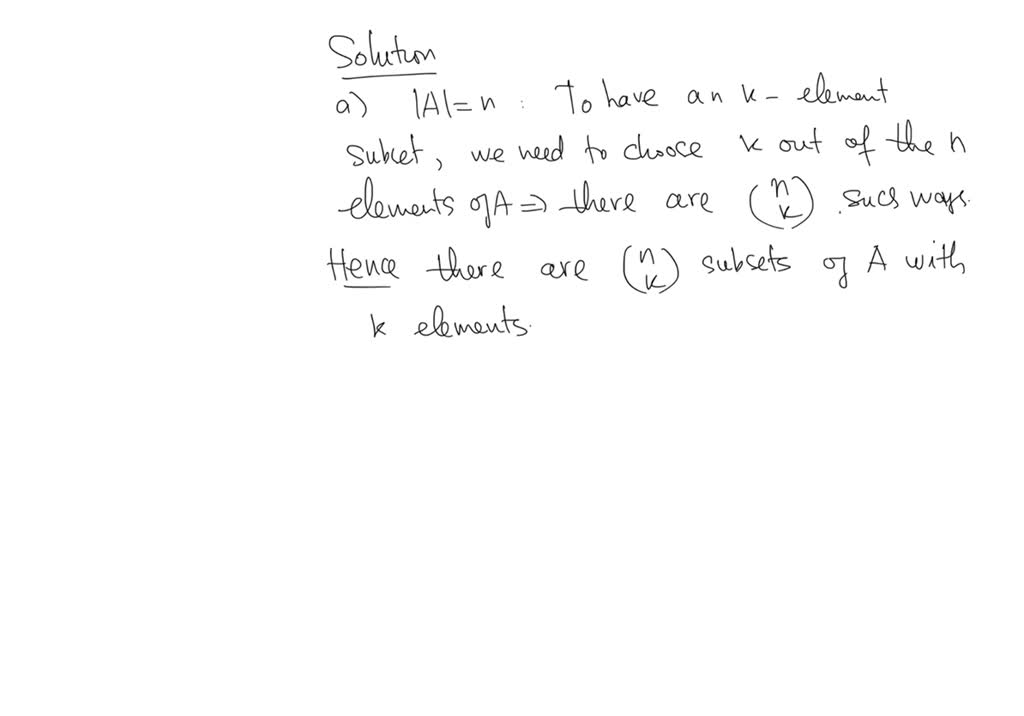 Solution
a) |A| = n : To have an k - element
subset, we need to choose k out of the n
elements of A ⇒ there are (n k) such ways.
Hence there are (n k) subsets of A with
k elements.